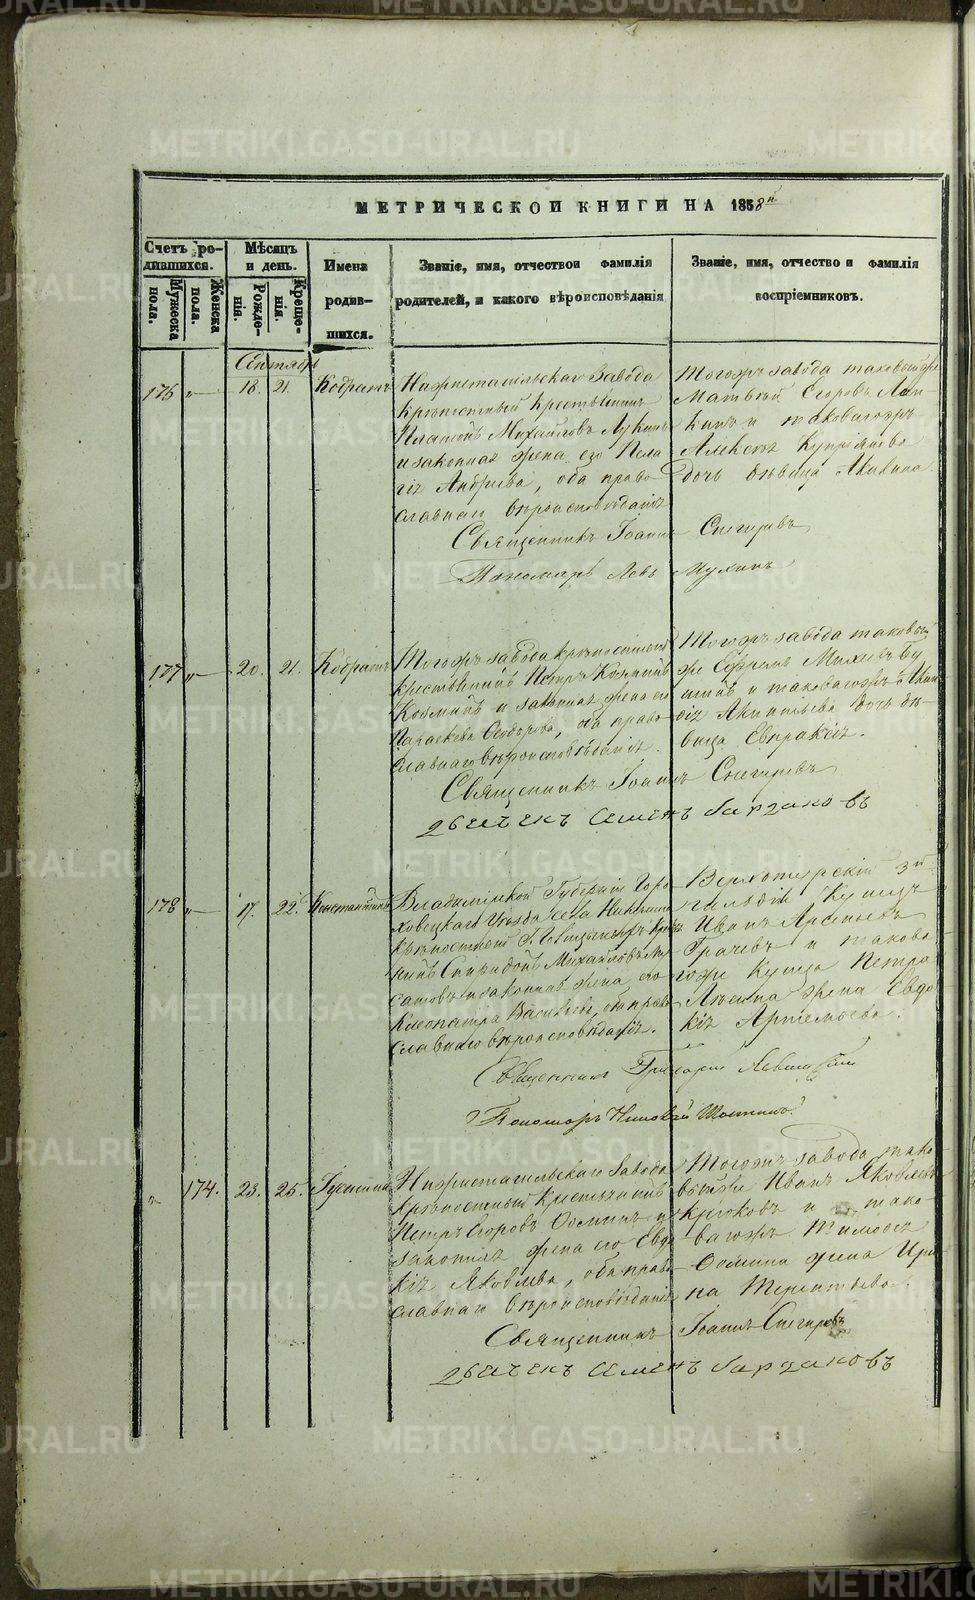 МЕТРИЧЕСКОЙ КНИГИ НА 1858й
Счетъ ро-
дившихся.
Мужеска
пола.
Женска
пола.
Мѣсяцъ
и день.
Рожде-
нія.
Креще-
нія.
Имена
родив-
шихся.
Званіе, имя, отчество и фамилія
родителей, и какого вѣроисповѣданія
Званіе, имя, отчество и фамилія
воспріемниковъ.
Сентябрь
176 „ 18. 21. Кодратъ
Нижнетагильскаго Завода
Крѣпостный Крестьянинъ
Платонъ Михайловъ Лукинъ
и законная жена его Пела
гія Андріева, оба право
славнаго вѣроисповѣданія
Тогожъ завода таковый же
Матвей Егоровъ
и таковагожъ
Алексея Купріянова
дочь дѣвица Акилина
Священникъ Іоаннъ Снегиревъ
Пономарь Левъ Мухинъ
177 „ 20. 21. Кодратъ
Тогожъ завода крѣпостный
крестьянинъ Петръ Козминъ
и законная жена его
Параскева Ѳеодорова, оба право
славнаго вѣроисповѣданія.
Тогожъ завода таковый
же Ефремъ Михеевъ
и таковагожъ
Акинтьева дочь дѣ-
вица Евпраксія.
Священникъ Іоаннъ Снегиревъ
дьячекъ Семенъ Барзаковъ
178 „ 17. 22. Константинъ
Владимірской Губерніи Горо
ховецкаго Уѣзда села
крѣпостной Г.
Спиридонъ Михайловъ
и законная жена его
Клеопатра Васильева, оба право
славнаго вѣроисповѣданія.
Верхотурскій 3й
гильдіи Купецъ
Иванъ Арсеньевъ
Грачевъ и такова
гоже Купца Петра
Ляпина жена Евдо
кія Артемьева.
Священникъ Григорій Левицкій
Пономарь Николай
„ 174. 23. 25. Іустина
Нижнетагильскаго Завода
крѣпостный Крестьянинъ
Петръ Егоровъ Ѳоминъ и
законная жена его Евдо
кія Яковлева, оба право
славнаго вѣроисповѣданія
Тогожъ завода тако
вый же Иванъ Яковлевъ
Крюковъ и тако
вагожъ Тимоѳея
Ѳомина жена Ири
на Терентьева.
Священникъ Іоаннъ Снегиревъ
дьячекъ Семенъ Барзаковъ
METRIKI.GASO-URAL.RU